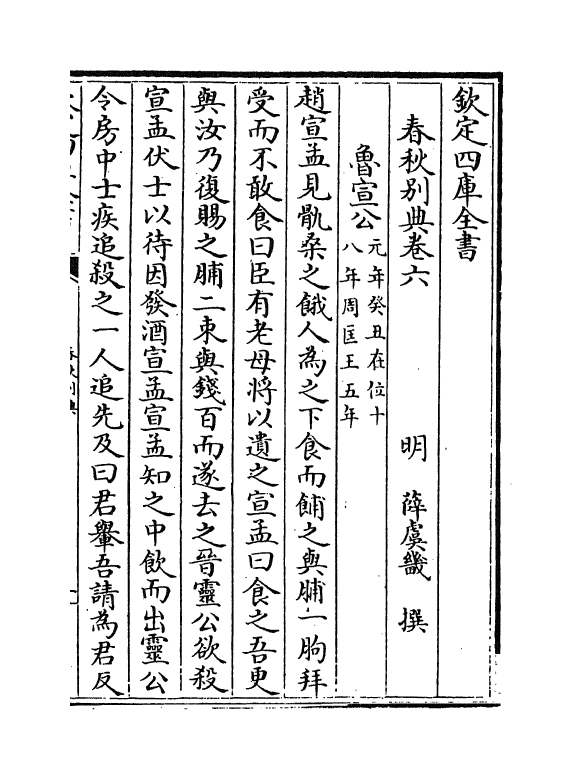 欽定四庫全書
春秋别典卷六
明 薛虞畿 撰
魯宣公元年癸丑在位十
八年周匡王五年
趙宣孟見骫桑之餓人為之下食而餔之與脯一朐拜
受而不敢食曰臣有老母將以遺之宣孟曰食之吾更
與汝乃復賜之脯二束與錢百而遂去之晉靈公欲殺
宣孟伏士以待因發酒宣孟宣孟知之中飲而出靈公
令房中士疾追殺之一人追先及曰君轝吾請為君反